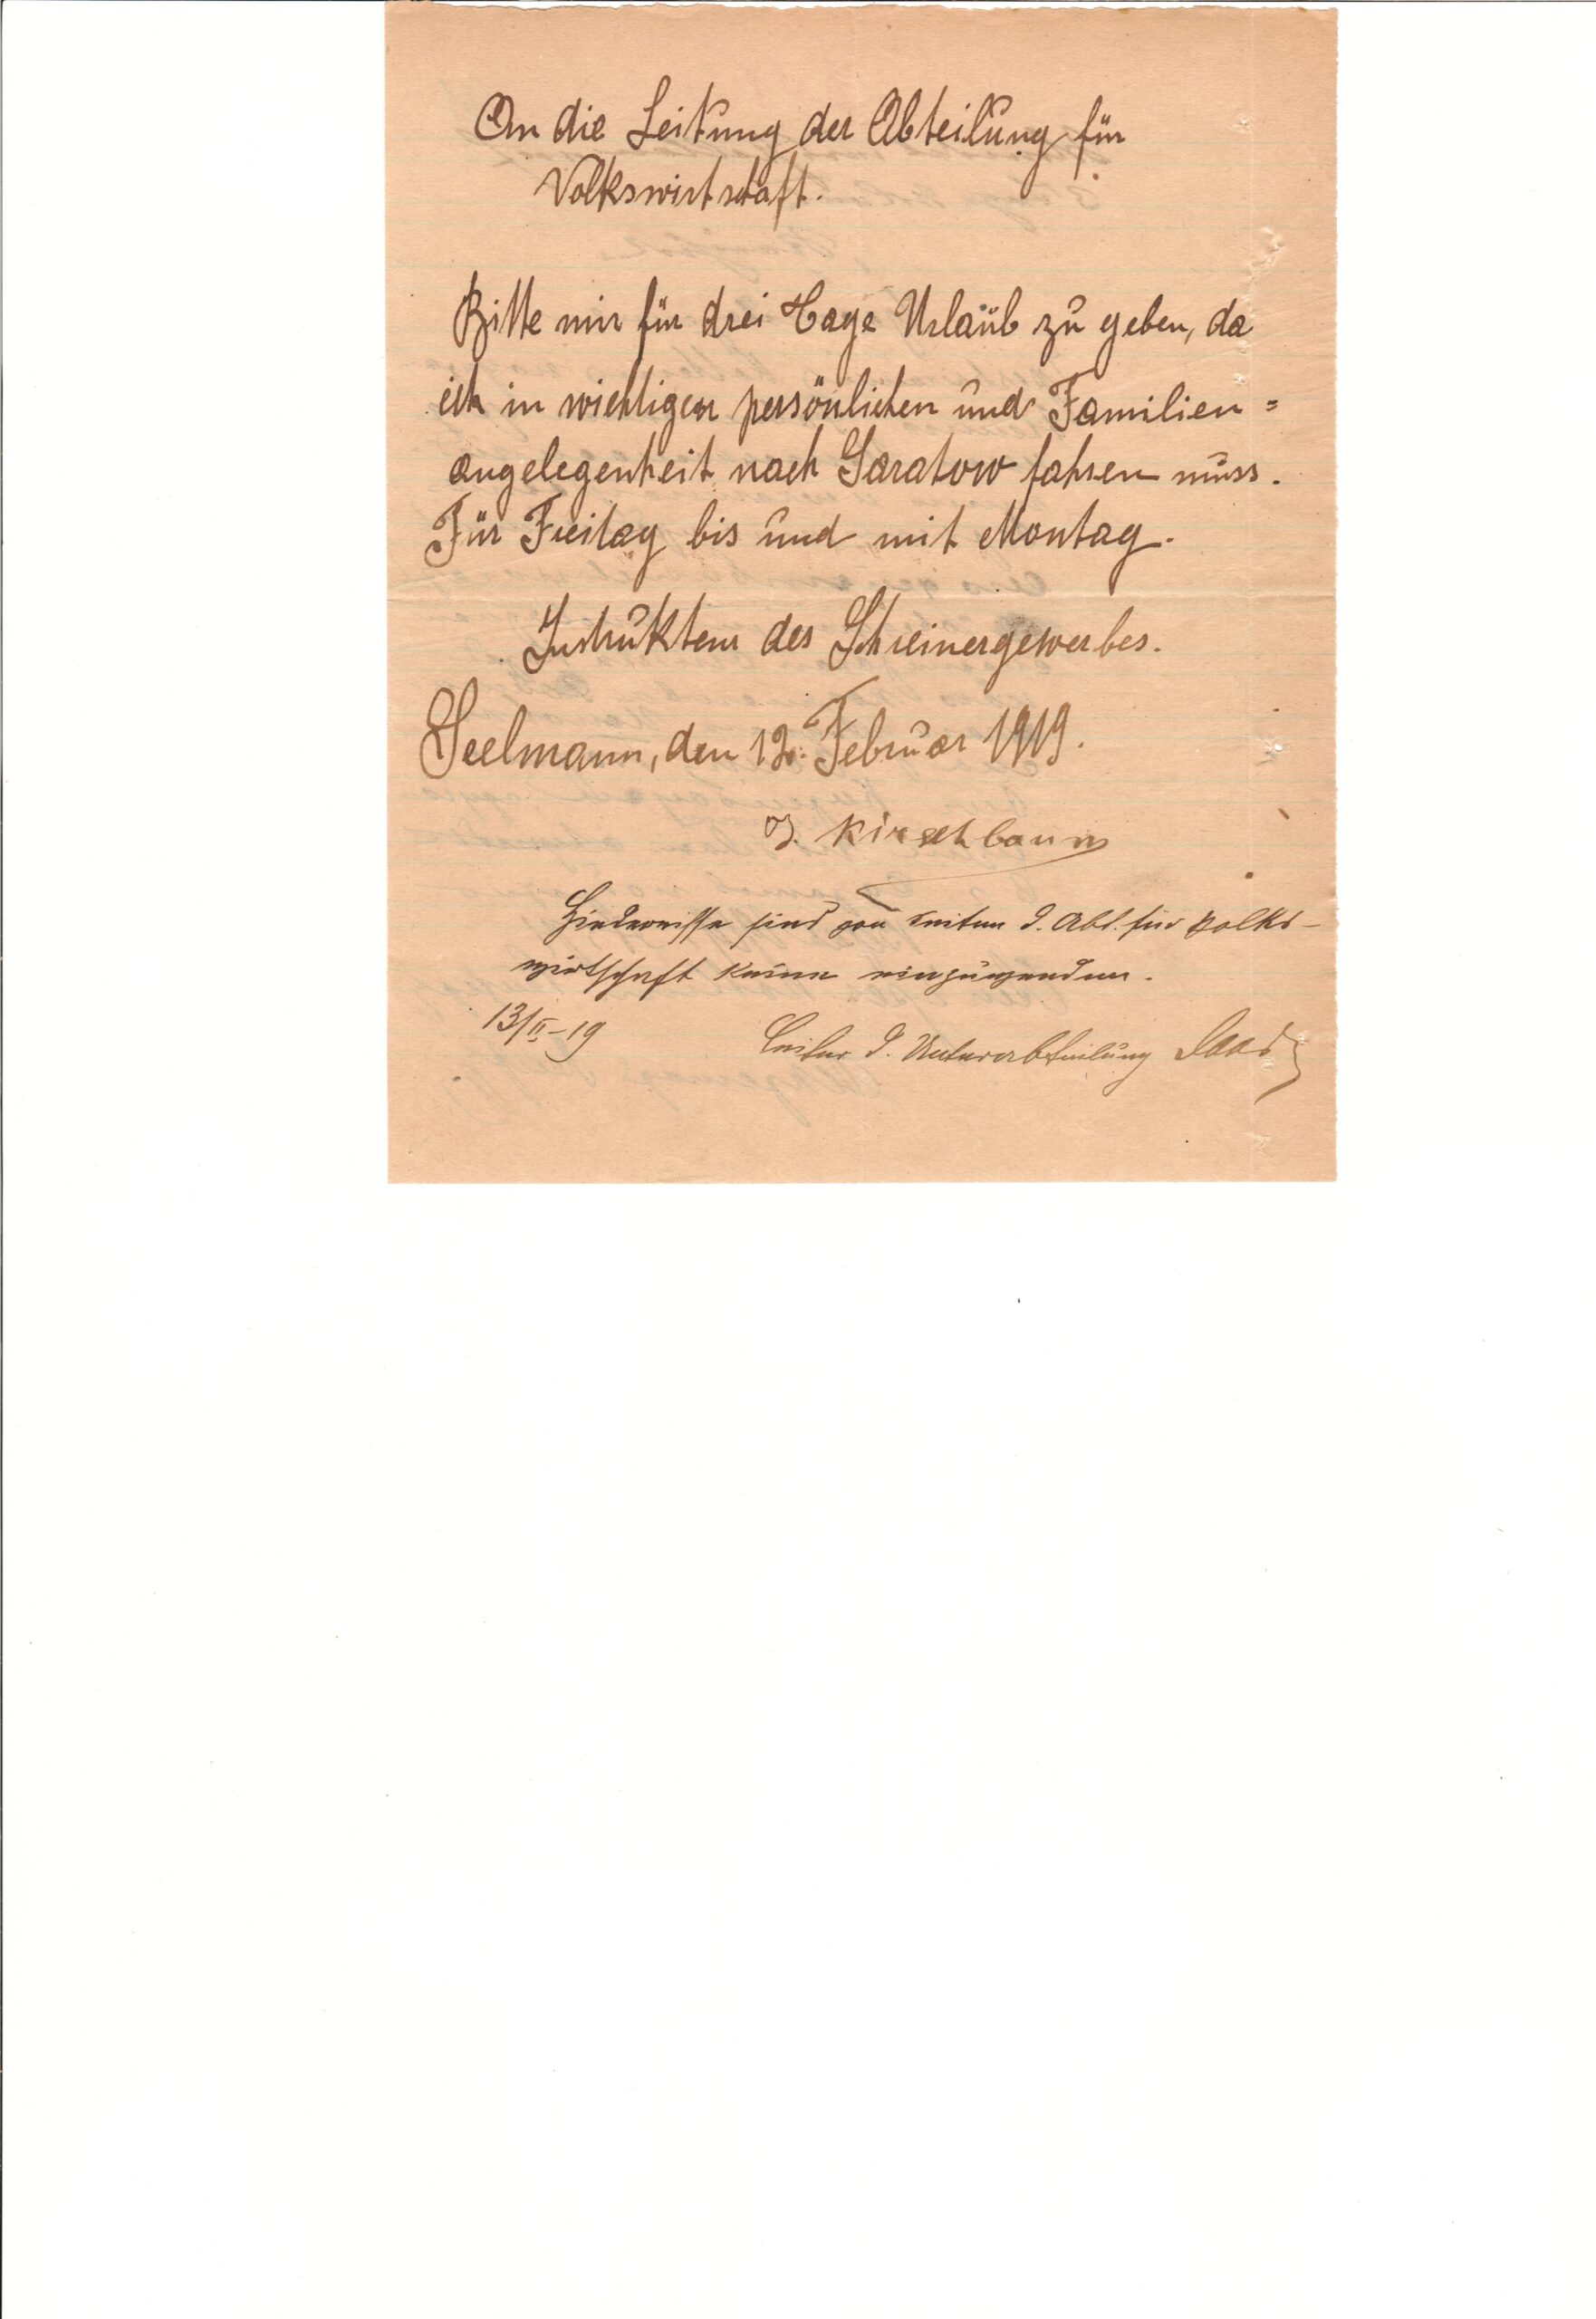 An die Leitung der Abteilung für
Volkswirtschaft.
Bitte mir für drei Tage Urlaub zu geben, da
ich in wichtiger persönlichen und Familien=
angelegenheit nach Saratow fahren muss.
Für Freitag bis und mit Montag.
Instrukteur des Schreinergewerbes.
Seelmann, den 12. Februar 1919.
J. Kirschbaum
Hindernisse sind von Seiten d. Abt. für Volks-
wirtschaft keine einzuwenden.
13/II-19
Leiter d. Unterabteilung